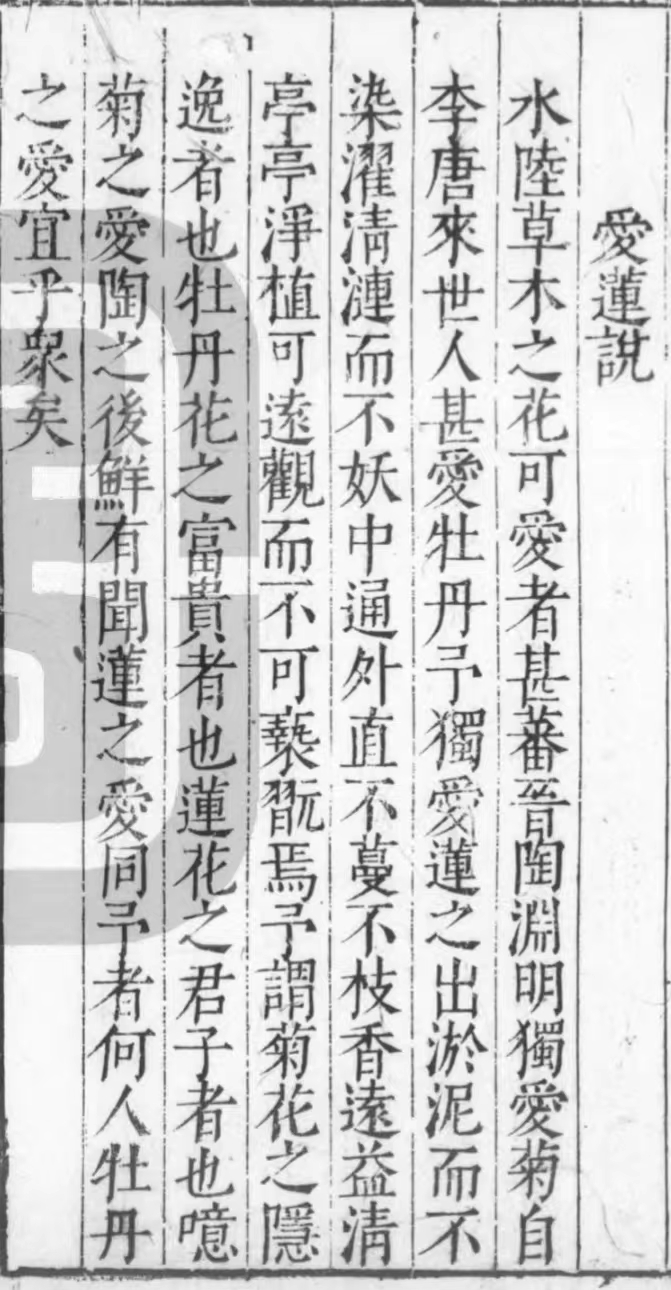 愛蓮說
水陸草木之花可愛者甚蕃晉陶淵明獨愛菊自
李唐來世人甚愛牡丹予獨愛蓮之出淤泥而不
染濯淸漣而不妖中通外直不蔓不枝香遠益淸
亭亭淨植可遠觀而不可褻翫焉予謂菊花之隱
逸者也牡丹花之富貴者也蓮花之君子者也噫
菊之愛陶之後鮮有聞蓮之愛同予者何人牡丹
之愛宜乎衆矣